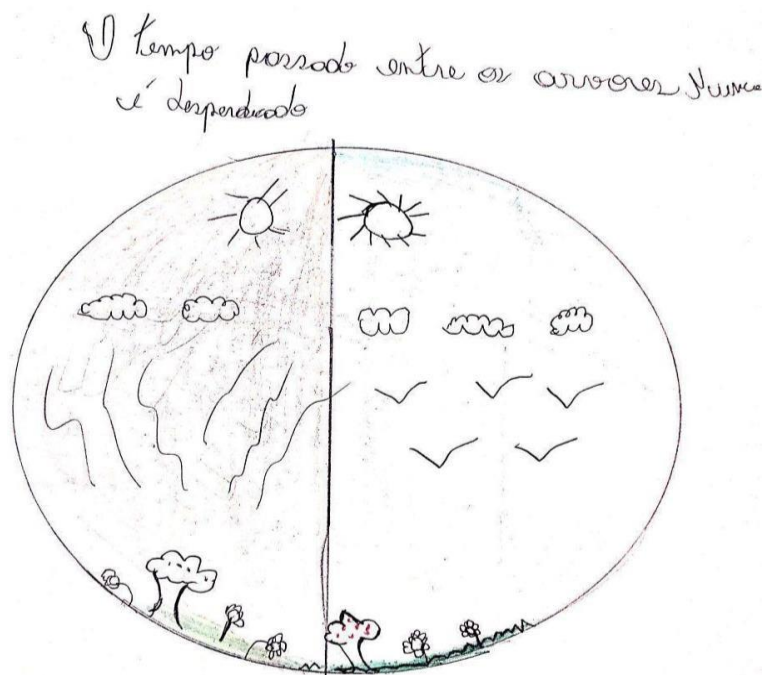 O tempo passado entre as arvores Nunca
é desperdicado